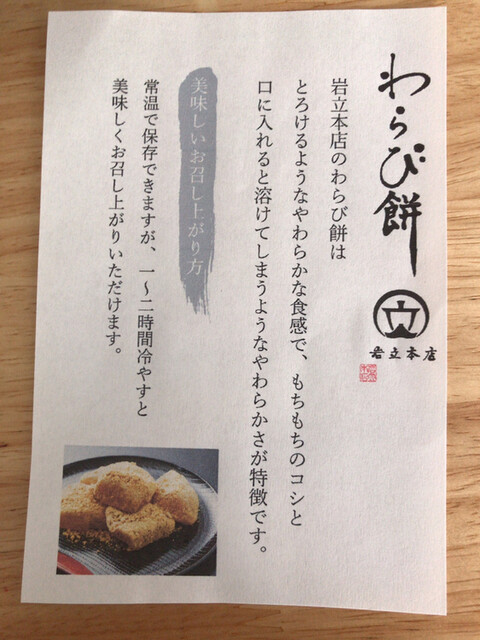 わらび餅
岩立本店
岩立本店のわらび餅は
とろけるようなやわらかな食感で、もちもちのコシと
口に入れると溶けてしまうようなやわらかさが特徴です。
美味しいお召し上がり方
常温で保存できますが、一〜二時間冷やすと
美味しくお召し上がりいただけます。